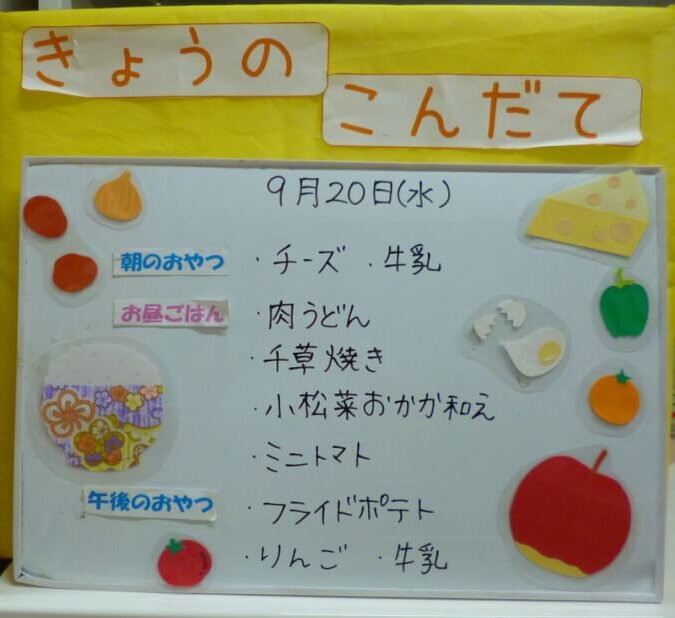 きょうの
こんだて
9月20日(水)
朝のおやつ ・チーズ ・牛乳
お昼ごはん ・肉うどん
・千草焼き
・小松菜おかか和え
・ミニトマト
午後のおやつ ・フライドポテト
・りんご ・牛乳